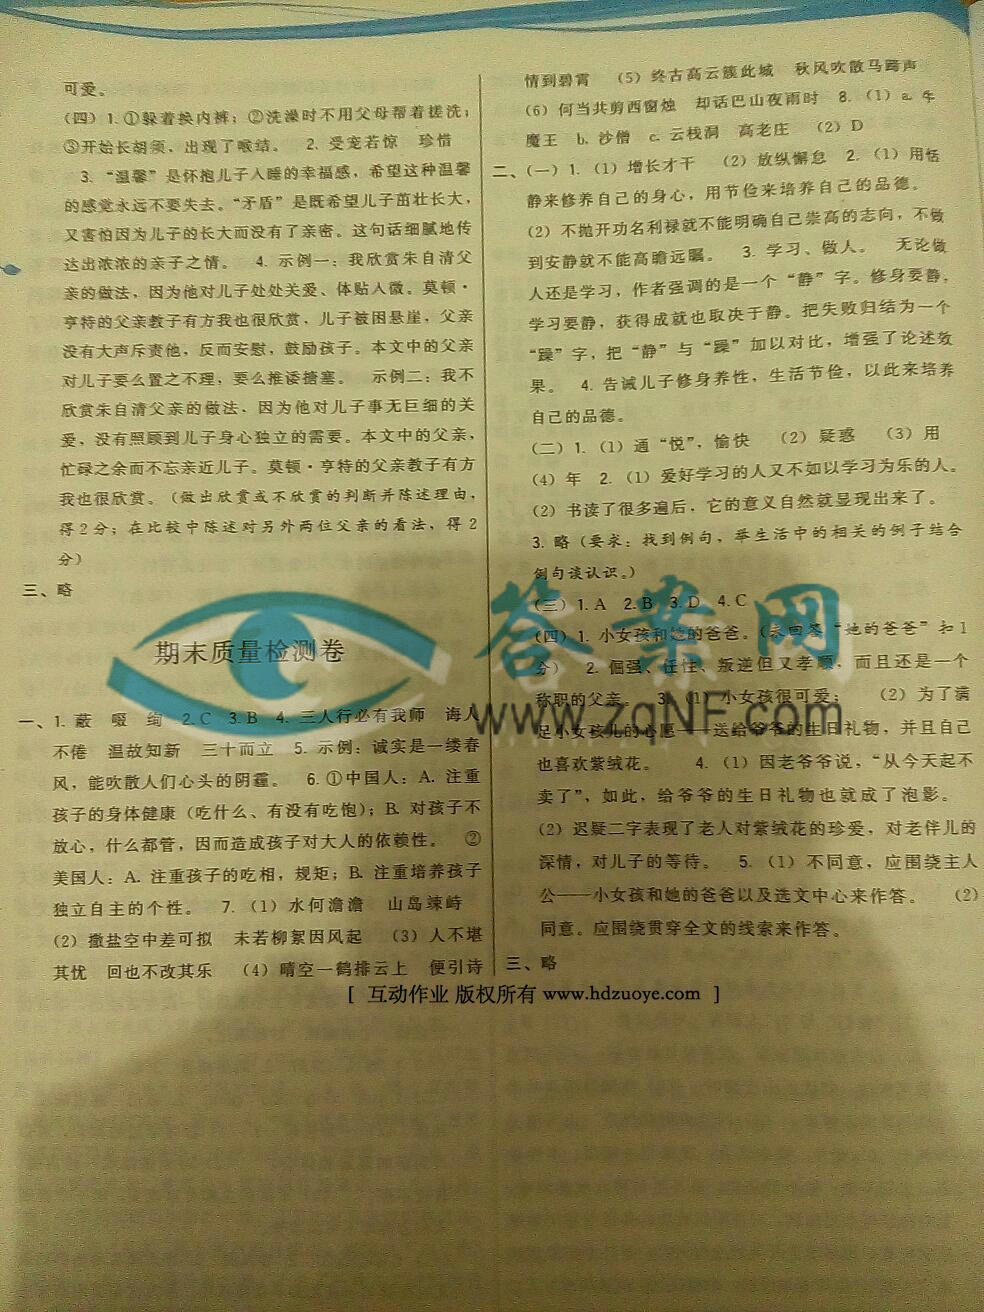 可爱。
(四)1.①躲着换内裤;②洗澡时不用父母帮着搓洗;
③开始长胡须、出现了喉结。 2. 受宠若惊 珍惜
3. “温馨”是怀抱儿子入睡的幸福感,希望这种温馨
的感觉永远不要失去。“矛盾”是既希望儿子茁壮长大,
又害怕因为儿子的长大而没有了亲密。这句话细腻地传
达出浓浓的亲子之情。 4. 示例一:我欣赏朱自清父
亲的做法,因为他对儿子处处关爱、体贴入微。莫顿·
亨特的父亲教子有方我也很欣赏,儿子被困悬崖,父亲
没有大声斥责他,反而安慰,鼓励孩子。本文中的父亲
对儿子要么置之不理,要么推诿搪塞。 示例二:我不
欣赏朱自清父亲的做法,因为他对儿子事无巨细的关
爱,没有照顾到儿子身心独立的需要。本文中的父亲,
忙碌之余而不忘亲近儿子。莫顿·亨特的父亲教子有方
我也很欣赏。(做出欣赏或不欣赏的判断并陈述理由,
得2分;在比较中陈述对另外两位父亲的看法,得2
分)
三、略
期末质量检测卷
一、1. 蔽 啜 绚 2.C 3.B 4. 三人行必有我师 诲人
不倦 温故知新 三十而立 5. 示例:诚实是一缕春
风,能吹散人们心头的阴霾。 6. ①中国人:A. 注重
孩子的身体健康(吃什么、有没有吃饱);B. 对孩子不
放心,什么都管,因而造成孩子对大人的依赖性。 ②
美国人:A. 注重孩子的吃相,规矩;B. 注重培养孩子
独立自主的个性。 7. (1) 水何澹澹 山岛竦峙
(2) 撒盐空中差可拟 未若柳絮因风起 (3) 人不堪
其忧 回也不改其乐 (4) 晴空一鹤排云上 便引诗
情到碧霄 (5) 终古高云簇此城 秋风吹散马蹄声
(6) 何当共剪西窗烛 却话巴山夜雨时 8. (1) a. 牛
魔王 b. 沙僧 c. 云栈洞 高老庄 (2) D
二、(一) 1. (1) 增长才干 (2) 放纵懈怠 2. (1) 用恬
静来修养自己的身心,用节俭来培养自己的品德。
(2) 不抛开功名利禄就不能明确自己崇高的志向,不做
到安静就不能高瞻远瞩。 3. 学习、做人。 无论做
人还是学习,作者强调的是一个“静”字。修身要静,
学习要静,获得成就也取决于静。把失败归结为一个
“躁”字,把“静”与“躁”加以对比,增强了论述效
果。 4. 告诫儿子修身养性,生活节俭,以此来培养
自己的品德。
(二) 1. (1) 通“悦”,愉快 (2) 疑惑 (3) 用
(4) 年 2. (1) 爱好学习的人又不如以学习为乐的人。
(2) 书读了很多遍后,它的意义自然就显现出来了。
3. 略(要求:找到例句,举生活中的相关的例子结合
例句谈认识。)
(三) 1. A 2. B 3. D 4. C
(四) 1. 小女孩和她的爸爸。(未回答“她的爸爸”扣1
分) 2. 倔强、任性、叛逆但又孝顺,而且还是一个
称职的父亲。 3. (1) 小女孩很可爱; (2) 为了满
足小女孩儿的心愿——送给爷爷的生日礼物,并且自己
也喜欢紫绒花。 4. (1) 因老爷爷说,“从今天起不
卖了”,如此,给爷爷的生日礼物也就成了泡影。
(2) 迟疑二字表现了老人对紫绒花的珍爱,对老伴儿的
深情,对儿子的等待。 5. (1) 不同意,应围绕主人
公——小女孩和她的爸爸以及选文中心来作答。 (2)
同意。应围绕贯穿全文的线索来作答。
三、略
答案网
www.zqNF.com
[ 互动作业 版权所有 www.hdzuoye.com ]